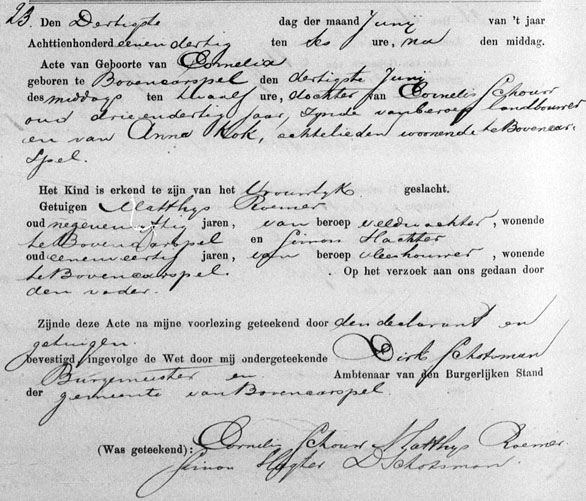 23. Den Dertigste dag der maand Junij van 't jaar
Achttienhonderd eenendertig ten zes ure, na den middag.
Acte van Geboorte van Cornelia
geboren te Bovencarspel den dertigste Junij
des middags ten twaalf ure, dochter van Cornelis Schouw
oud drieendertig jaar, zynde van beroep landbouwer
en van Anna Kok, echtelieden woonende te Bovencar-
spel.
Het Kind is erkend te zijn van het Vrouwlyk geslacht.
Getuigen Matthys Roemer
oud jaren, van beroep veldwachter, wonende
te Bovencarspel en Simon Slachter
oud eenenveertig jaren, van beroep vleeshouwer, wonende
te Bovencarspel. Op het verzoek aan ons gedaan door
den vader.
Zijnde deze Acte na mijne voorlezing geteekend door den declarant en
getuigen.
bevestigd ingevolge de Wet door mij ondergeteekende Dirk Schotsman
Burgemeister en Ambtenaar van den Burgerlijken Stand
der gemeente van Bovencarspel.
(Was geteekend): Cornelis Schouw Matthys Roemer.
Simon Slagter D Schotsman.